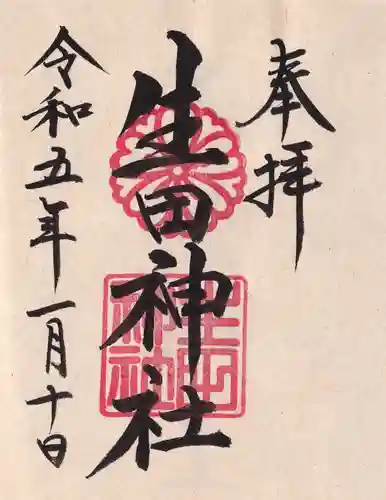 奉拝
生田神社
令和五年一月十日
生田神社